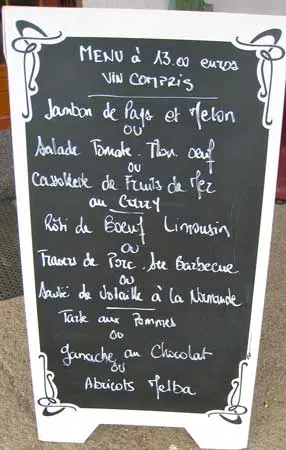 MENU à 13.00 euros
VIN COMPRIS
Jambon de Pays et Melon
ou
Salade Tomate. Thon. oeuf
ou
Cassolette de Fruits de Mer
au Curry
Rôti de Boeuf Limousin
ou
Travers de Porc. Sce Barbecue
ou
Sauté de Volaille à la Normande
Tarte aux Pommes
ou
ganache au Chocolat
ou
Abricots Melba